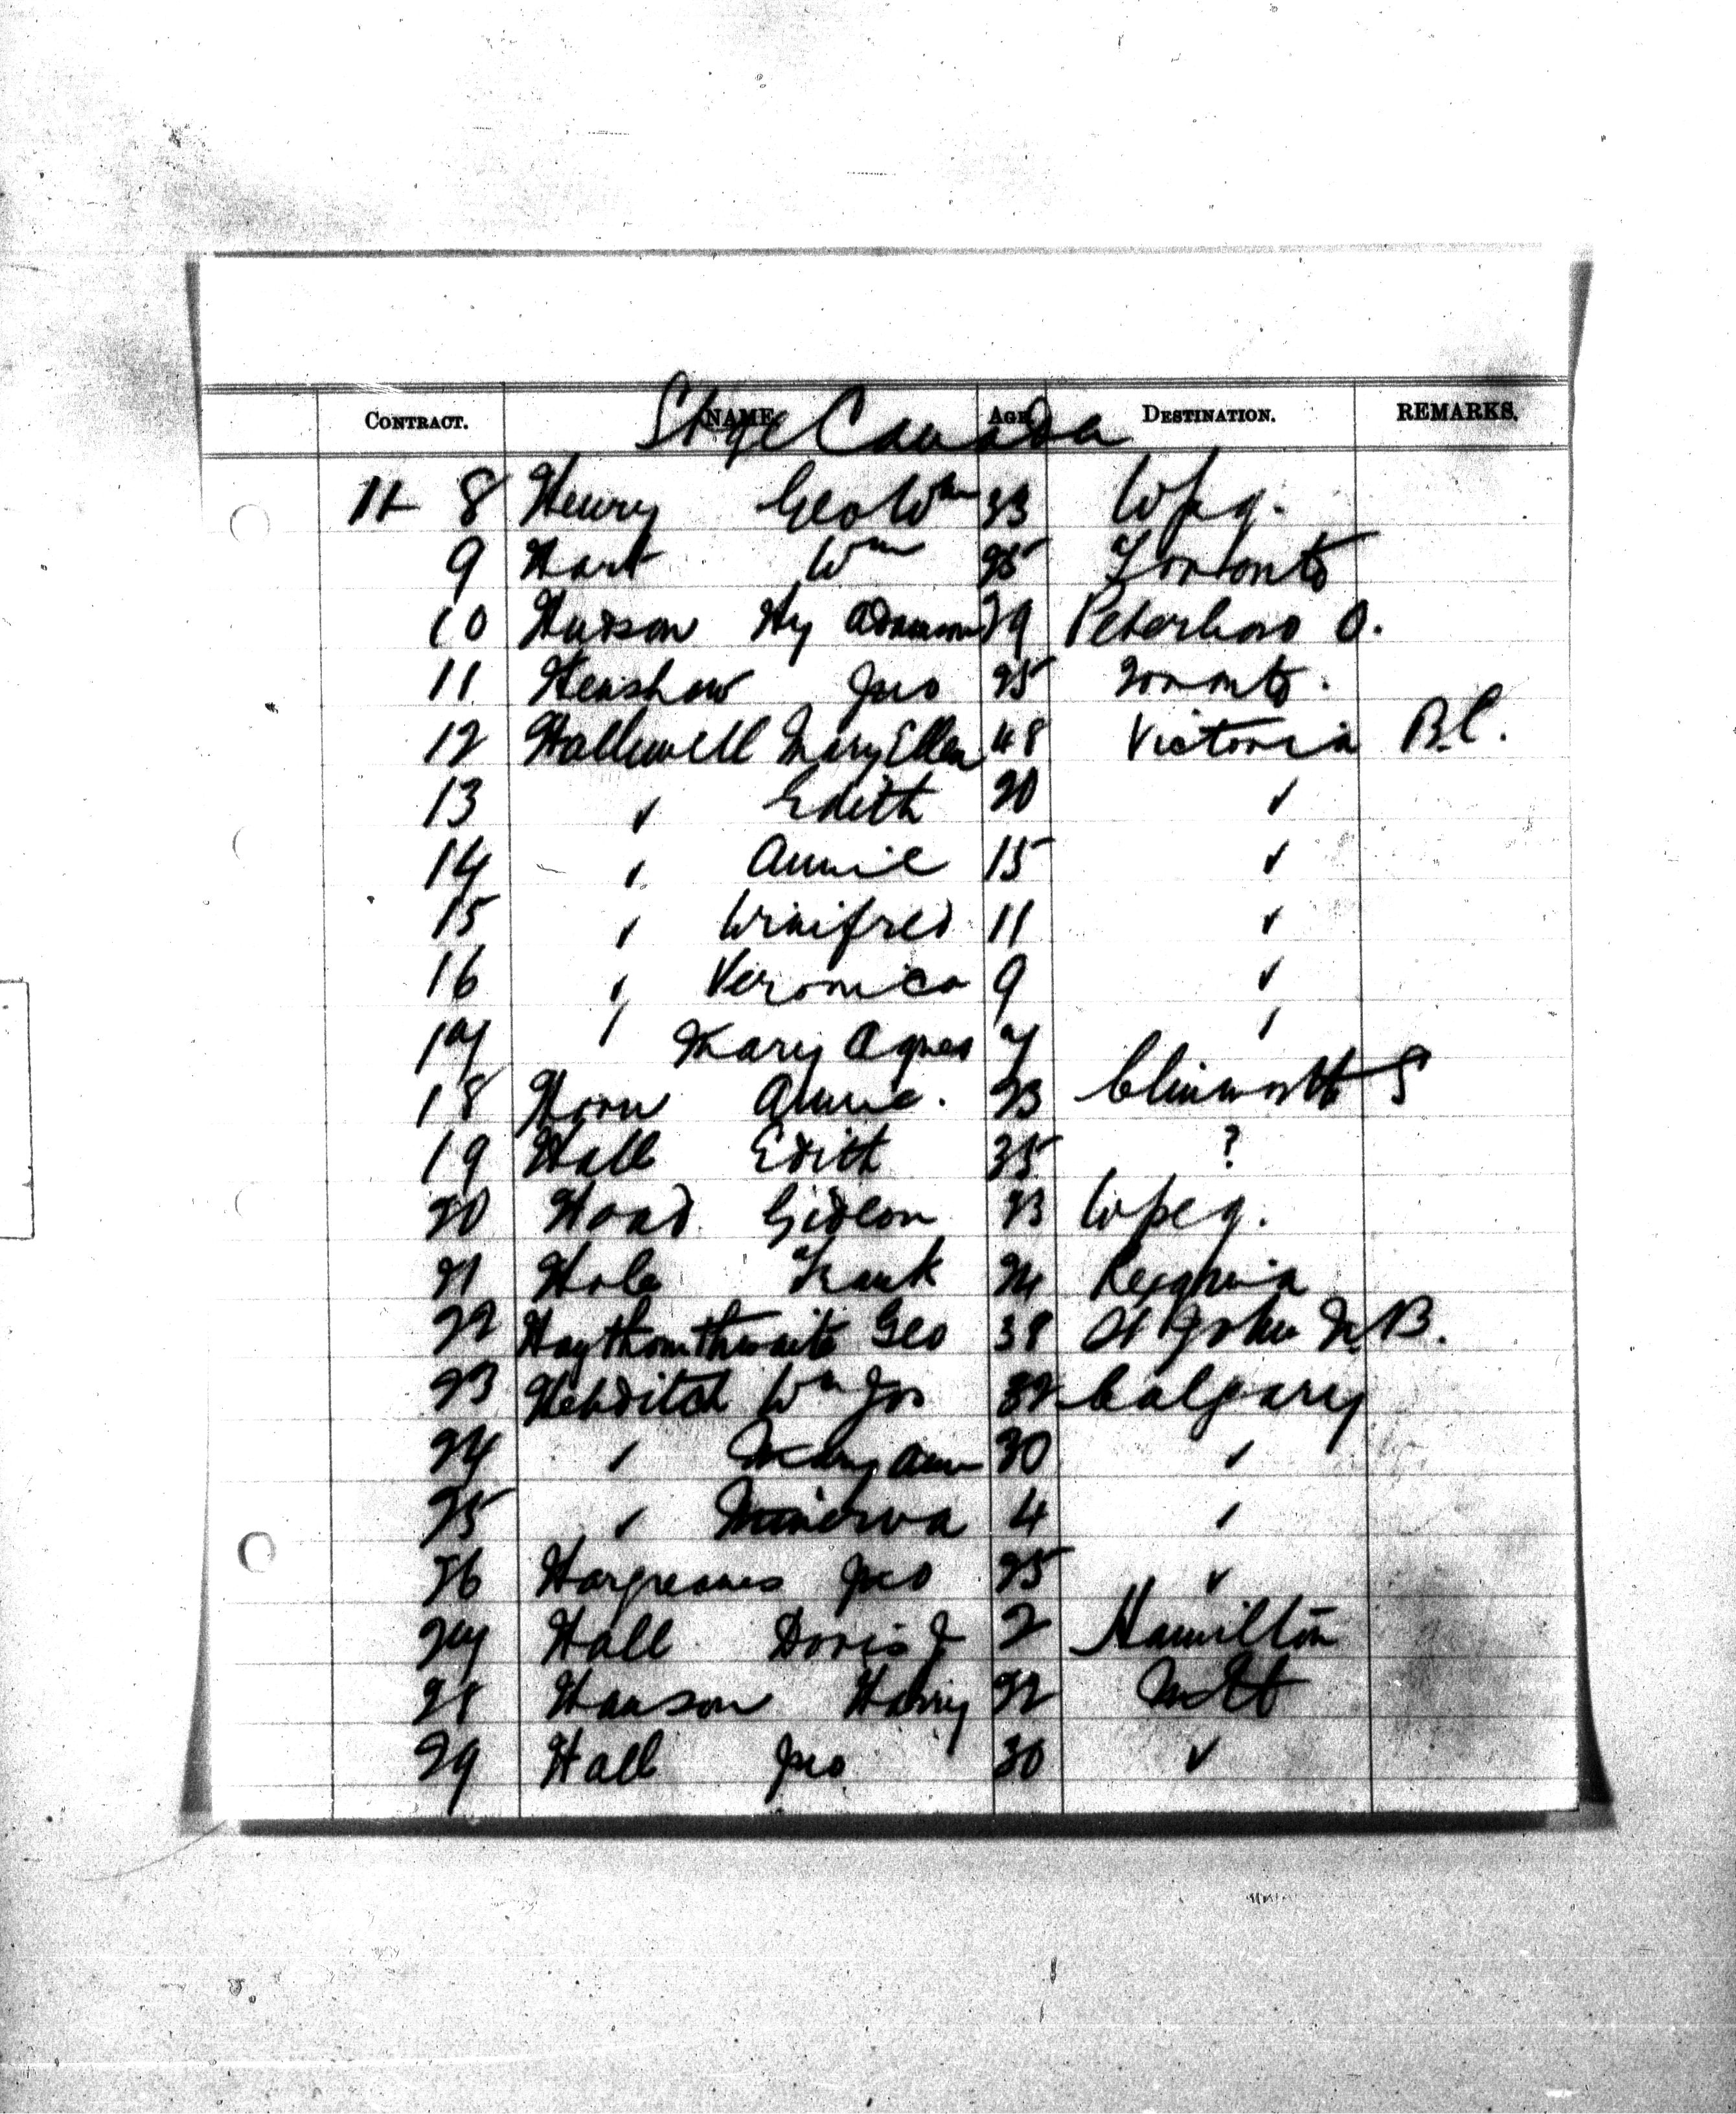 CONTRACT. NAME AGE DESTINATION. REMARKS.
Stge Canada
H 8 Henry Geo Wm 33 Wpg.
9 Hart Wm 25 Toronto
10 Hudson Hy Adamson 29 Peterboro O.
11 Henshaw Jno 25 Toronto.
12 Hallewell Mary Ellen 48 Victoria B.C.
13 " Edith 20 "
14 " Annie 15 "
15 " Winifred 11 "
16 " Veronica 9 "
17 " Mary Agnes 7 "
18 Horn Annie. 23
19 Hall Edith 35 ?
20 Hoad Gideon 23 Wpeg.
21 Hole Frank 24 Regina
22 Haythornthwaite Geo 38 St John N.B.
23 Hebditch Wm Jos 32 Calgary
24 " Mary Ann 30 "
25 " Minerva 4 "
26 Hargreaves Jno 25 "
27 Hall Doris J 2 Hamilton
28 Hanson Harry 22
29 Hall Jno 30 "